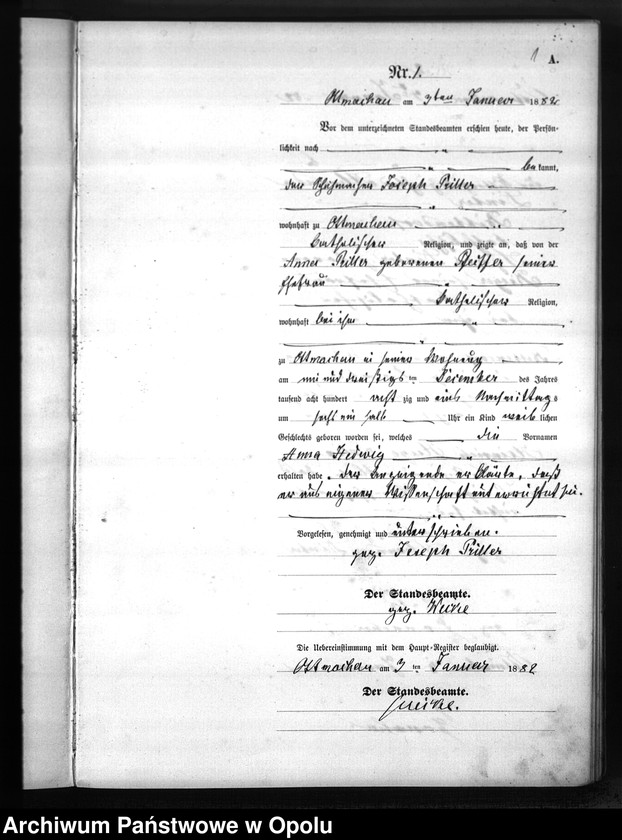 1 A.
Nr. 1.
Ottmachau am 3ten Januar 1882
Vor dem unterzeichneten Standesbeamten erschien heute, der Persön-
lichkeit nach
bekannt,
den Schuhmacher Joseph Ritter
wohnhaft zu Ottmachau
katholischer Religion, und zeigte an, daß von der
Anna Ritter geborenen seiner
Ehefrau
katholischer Religion,
wohnhaft bei ihm
zu Ottmachau in seiner Wohnung
am ein und dreißigsten December des Jahres
tausend acht hundert acht zig und eins Nachmittags
um halb Uhr ein Kind weiblichen
Geschlechts geboren worden sei, welches die Vornamen
Anna Hedwig
erhalten habe. Der Anzeigende erklärte, daß
er aus eigener Wissenschaft unterrichtet sei.
Vorgelesen, genehmigt und unterschrieben.
gez. Joseph Ritter
Der Standesbeamte.
gez.
Die Uebereinstimmung mit dem Haupt-Register beglaubigt.
Ottmachau am 3ten Januar 1882
Der Standesbeamte.
Archiwum Państwowe w Opolu